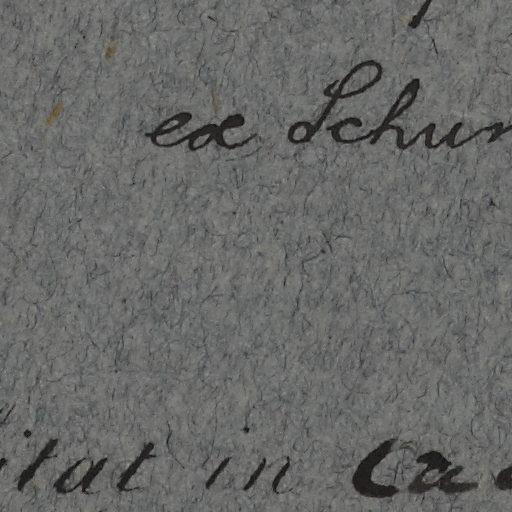 ex Schum
itat in Ca